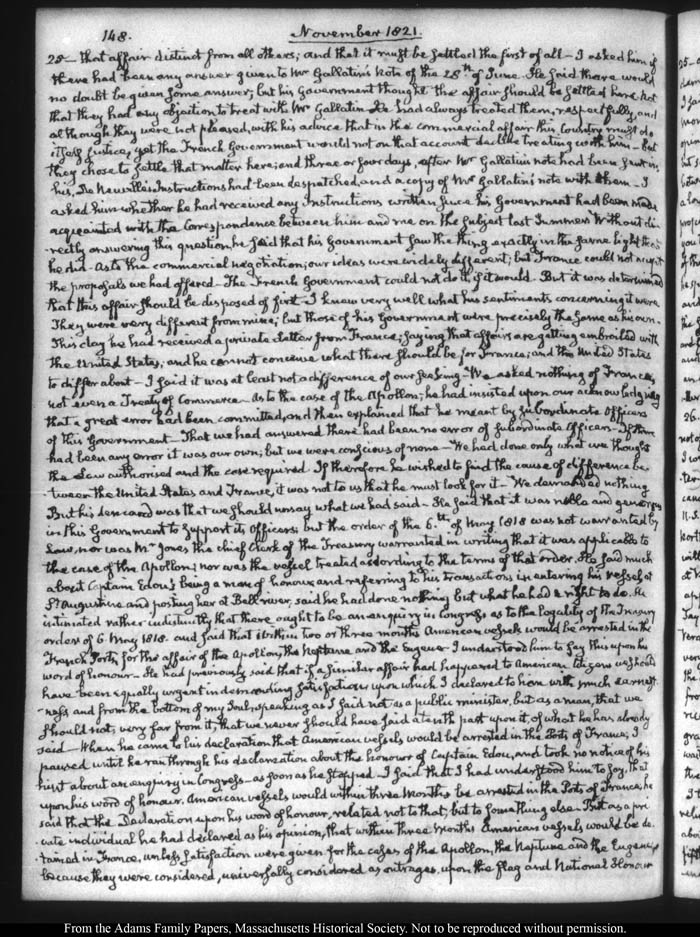 148.
November 1821.
25 — that affair distinct from all others; and that it must be settled the first of all — I asked him if
there had been any answer given to Mr Gallatin's Note of the 28th of June. He said there would
no doubt be given some answer; but his Government thought the affair should be settled here. Not
that they had any objection to treat with Mr Gallatin. He had always treated them, respectfully, and
although they were not pleased, with his advice that in the commercial affair this Country must do
itself justice, yet the French Government would not on that account decline treating with him — but
they chose to settle that matter here; and three or four days, after Mr Gallatin's note had been sent in
his, De Neuville's Instructions had been despatched, and a copy of Mr Gallatin's note with them — I
asked him whether he had received any Instructions written since his Government had been made
acquainted with the Correspondence between him and me on the subject last Summer. Without di-
rectly answering this question, he said that his Government saw the thing exactly in the same light that
he did. As to the commercial negotiation; our ideas were widely different; but France could not accept
the proposals we had offered — The French Government could not do it, if it would. But it was determined
that this affair should be disposed of first. I knew very well what his sentiments concerning it were
They were very different from mine; but those of his Government were precisely the same as his own.
This day he had received a private letter from France; saying that affairs are getting embroiled with
the United States; and he cannot conceive what there should be for France, and the United States
to differ about — I said it was at least not a difference of our seeking. We asked nothing of France,
not even a Treaty of Commerce — As to the case of the Apollon; he had insisted upon our acknowledging
that a great error had been committed, and then explained that he meant by subordinate Officers
of this Government — That we had answered there had been no error of subordinate Officers — If there
had been any error it was our own; but we were conscious of none — We had done only what we thought
the Law authorised and the case required. If therefore he wished to find the cause of difference be-
tween the United States and France, it was not to us that he must look for it — We demanded nothing
But his demand was that we should unsay what we had said — He said that it was noble and generous
in this Government to support its Officers; but the order of the 6th of May 1818 was not warranted by
Law, nor was Mr Jones the chief Clerk of the Treasury warranted in writing that it was applicable to
the case of the Apollon; nor was the vessel treated according to the terms of that order. He said much
about Captain Edou's being a man of honour, and referring to his transactions in entering his vessel at
St Augustine and posting her at Bell river, said he had done nothing but what he had a right to do. He
intimated rather indistinctly that there ought to be an enquiry in Congress as to the legality of the Treasury
orders of 6 May 1818. and said that within two or three months American vessels would be arrested in the
French Ports, for the affair of the Apollon, the Neptune and the Eugene. I understood him to say this upon his
word of honour — He had previously said that if a similar affair had happened to American Citizens we should
have been equally urgent in demanding satisfaction upon which I declared to him with much earnest-
ness and from the bottom of my Soul, speaking as I said not as a public minister, but as a man, that we
should not; very far from it, that we never should have said a tenth part upon it, of what he has already
said — When he came to his declaration that American vessels would be arrested in the Ports of France; I
paused until he ran through his declaration about the honour of Captain Edou, and took no notice of his
hint about an enquiry in Congress — as soon as he stopped. I said that I had understood him to say, that
upon his word of honour. American vessels would within three Months be arrested in the Ports of France, he
said that the Declaration upon his word of honour, related not to that; but to something else — But as a pri-
vate individual he had declared as his opinion, that within three Months American vessels would be de-
tained in France, unless satisfaction were given for the cases of the Apollon, the Neptune and the Eugene
because they were considered, universally considered as outrages, upon the flag and National Honour
From the Adams Family Papers, Massachusetts Historical Society. Not to be reproduced without permission.